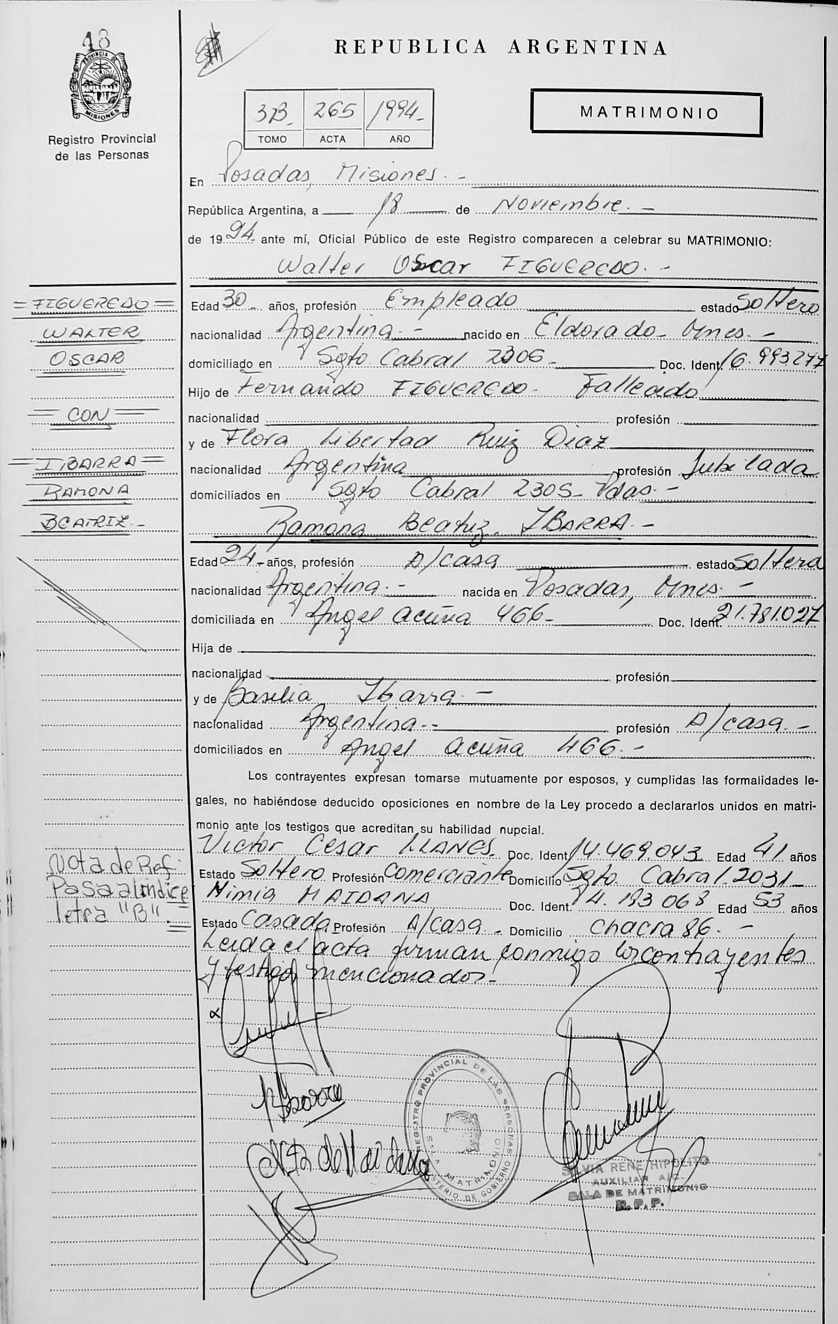 48
REPUBLICA ARGENTINA
PROVINCIA DE MISIONES
Registro Provincial
de las Personas
3B 265 1994-
TOMO ACTA AÑO
MATRIMONIO
En Posadas, Misiones. -
República Argentina, a 18 de Noviembre. -
de 1994 ante mí, Oficial Público de este Registro comparecen a celebrar su MATRIMONIO:
Walter Oscar FIGUEREDO. -
= FIGUEREDO =
WALTER
OSCAR
= CON =
= IBARRA =
RAMONA
BEATRIZ. -
Edad 30 - años, profesión Empleado estado Soltero
nacionalidad Argentina - nacido en Eldorado - Mnes. -
domiciliado en Sgto Cabral 2306 - Doc. Ident. 16.993.277
Hijo de Fernando FIGUEREDO - Falleado
nacionalidad profesión
y de Flora Libertad Ruiz Diaz
nacionalidad Argentina profesión Jubilada
domiciliados en Sgto Cabral 2305 - Pdas. -
Ramona Beatriz IBARRA -
Edad 24 - años, profesión A/casa estado Soltera
nacionalidad Argentina. - nacida en Posadas, Mnes. -
domiciliada en Angel Acuña 466 - Doc. Ident. 21.781.027
Hija de
nacionalidad profesión
y de Basilia Ibarra -
nacionalidad Argentina - profesión A/casa -
domiciliados en Angel Acuña 466. -
Los contrayentes expresan tomarse mutuamente por esposos, y cumplidas las formalidades le-
gales, no habiéndose deducido oposiciones en nombre de la Ley procedo a declararlos unidos en matri-
monio ante los testigos que acreditan su habilidad nupcial.
Victor Cesar LLANES Doc. Ident. 14.469.043 Edad 41 años
Estado Soltero Profesión Comerciante Domicilio Sgto Cabral 2031 -
Nimia MAIDANA Doc. Ident. 14.183.068 Edad 53 años
Estado Casada Profesión A/casa - Domicilio Chacra 86. -
Leida el acta firman conmigo los contrayentes
y testigos mencionados. -
Nota de Ref.:
Pasa al indice
letra "B". =
RIbarra
REGISTRO PROVINCIAL DE LAS PERSONAS
SALA MATRIMONIO
MINISTERIO DE GOBIERNO
SILVIA RENE HIPOLITO
AUXILIAR
SALA DE MATRIMONIO
R.P.P.